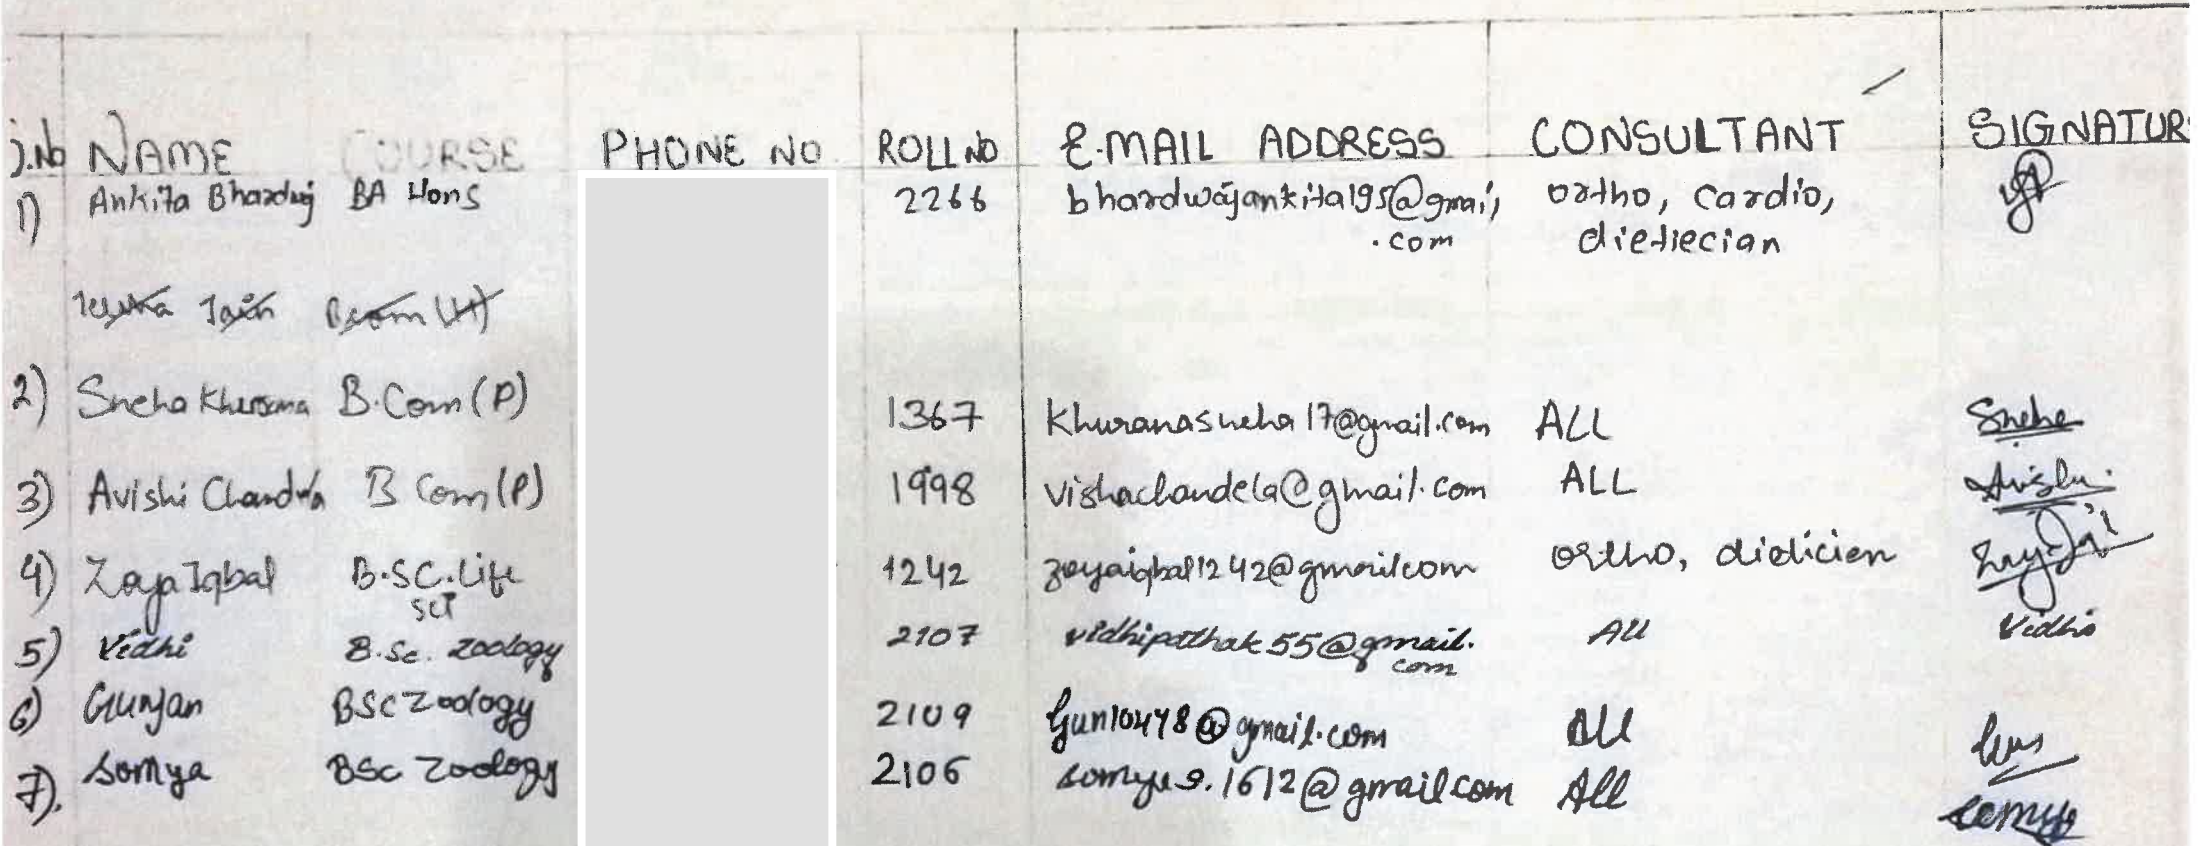 S.No NAME COURSE PHONE NO ROLL NO E.MAIL ADDRESS CONSULTANT SIGNATUR
1) Ankita Bhardwj BA Hons 2266 bhardwajankita195@gmail ortho, cardio,
.com dietiecian
Jain Bcom (H)
2) Sneha Khurana B.Com (P) 1367 khuranasneha17@gmail.com ALL Sneha
3) Avishi Chandela B Com (P) 1998 vishachandela@gmail.com ALL Avishi
4) Zoya Iqbal B.SC.Life 1242 zoyaiqbal1242@gmailcom ortho, dieticien
sci
5) Vidhi B.Sc. Zoology 2107 vidhipathak55@gmail. All Vidhi
com
6) Gunjan BSc Zoology 2109 gun10478@gmail.com All
7). Somya BSc Zoology 2106 somyas.1612@gmailcom All Somya